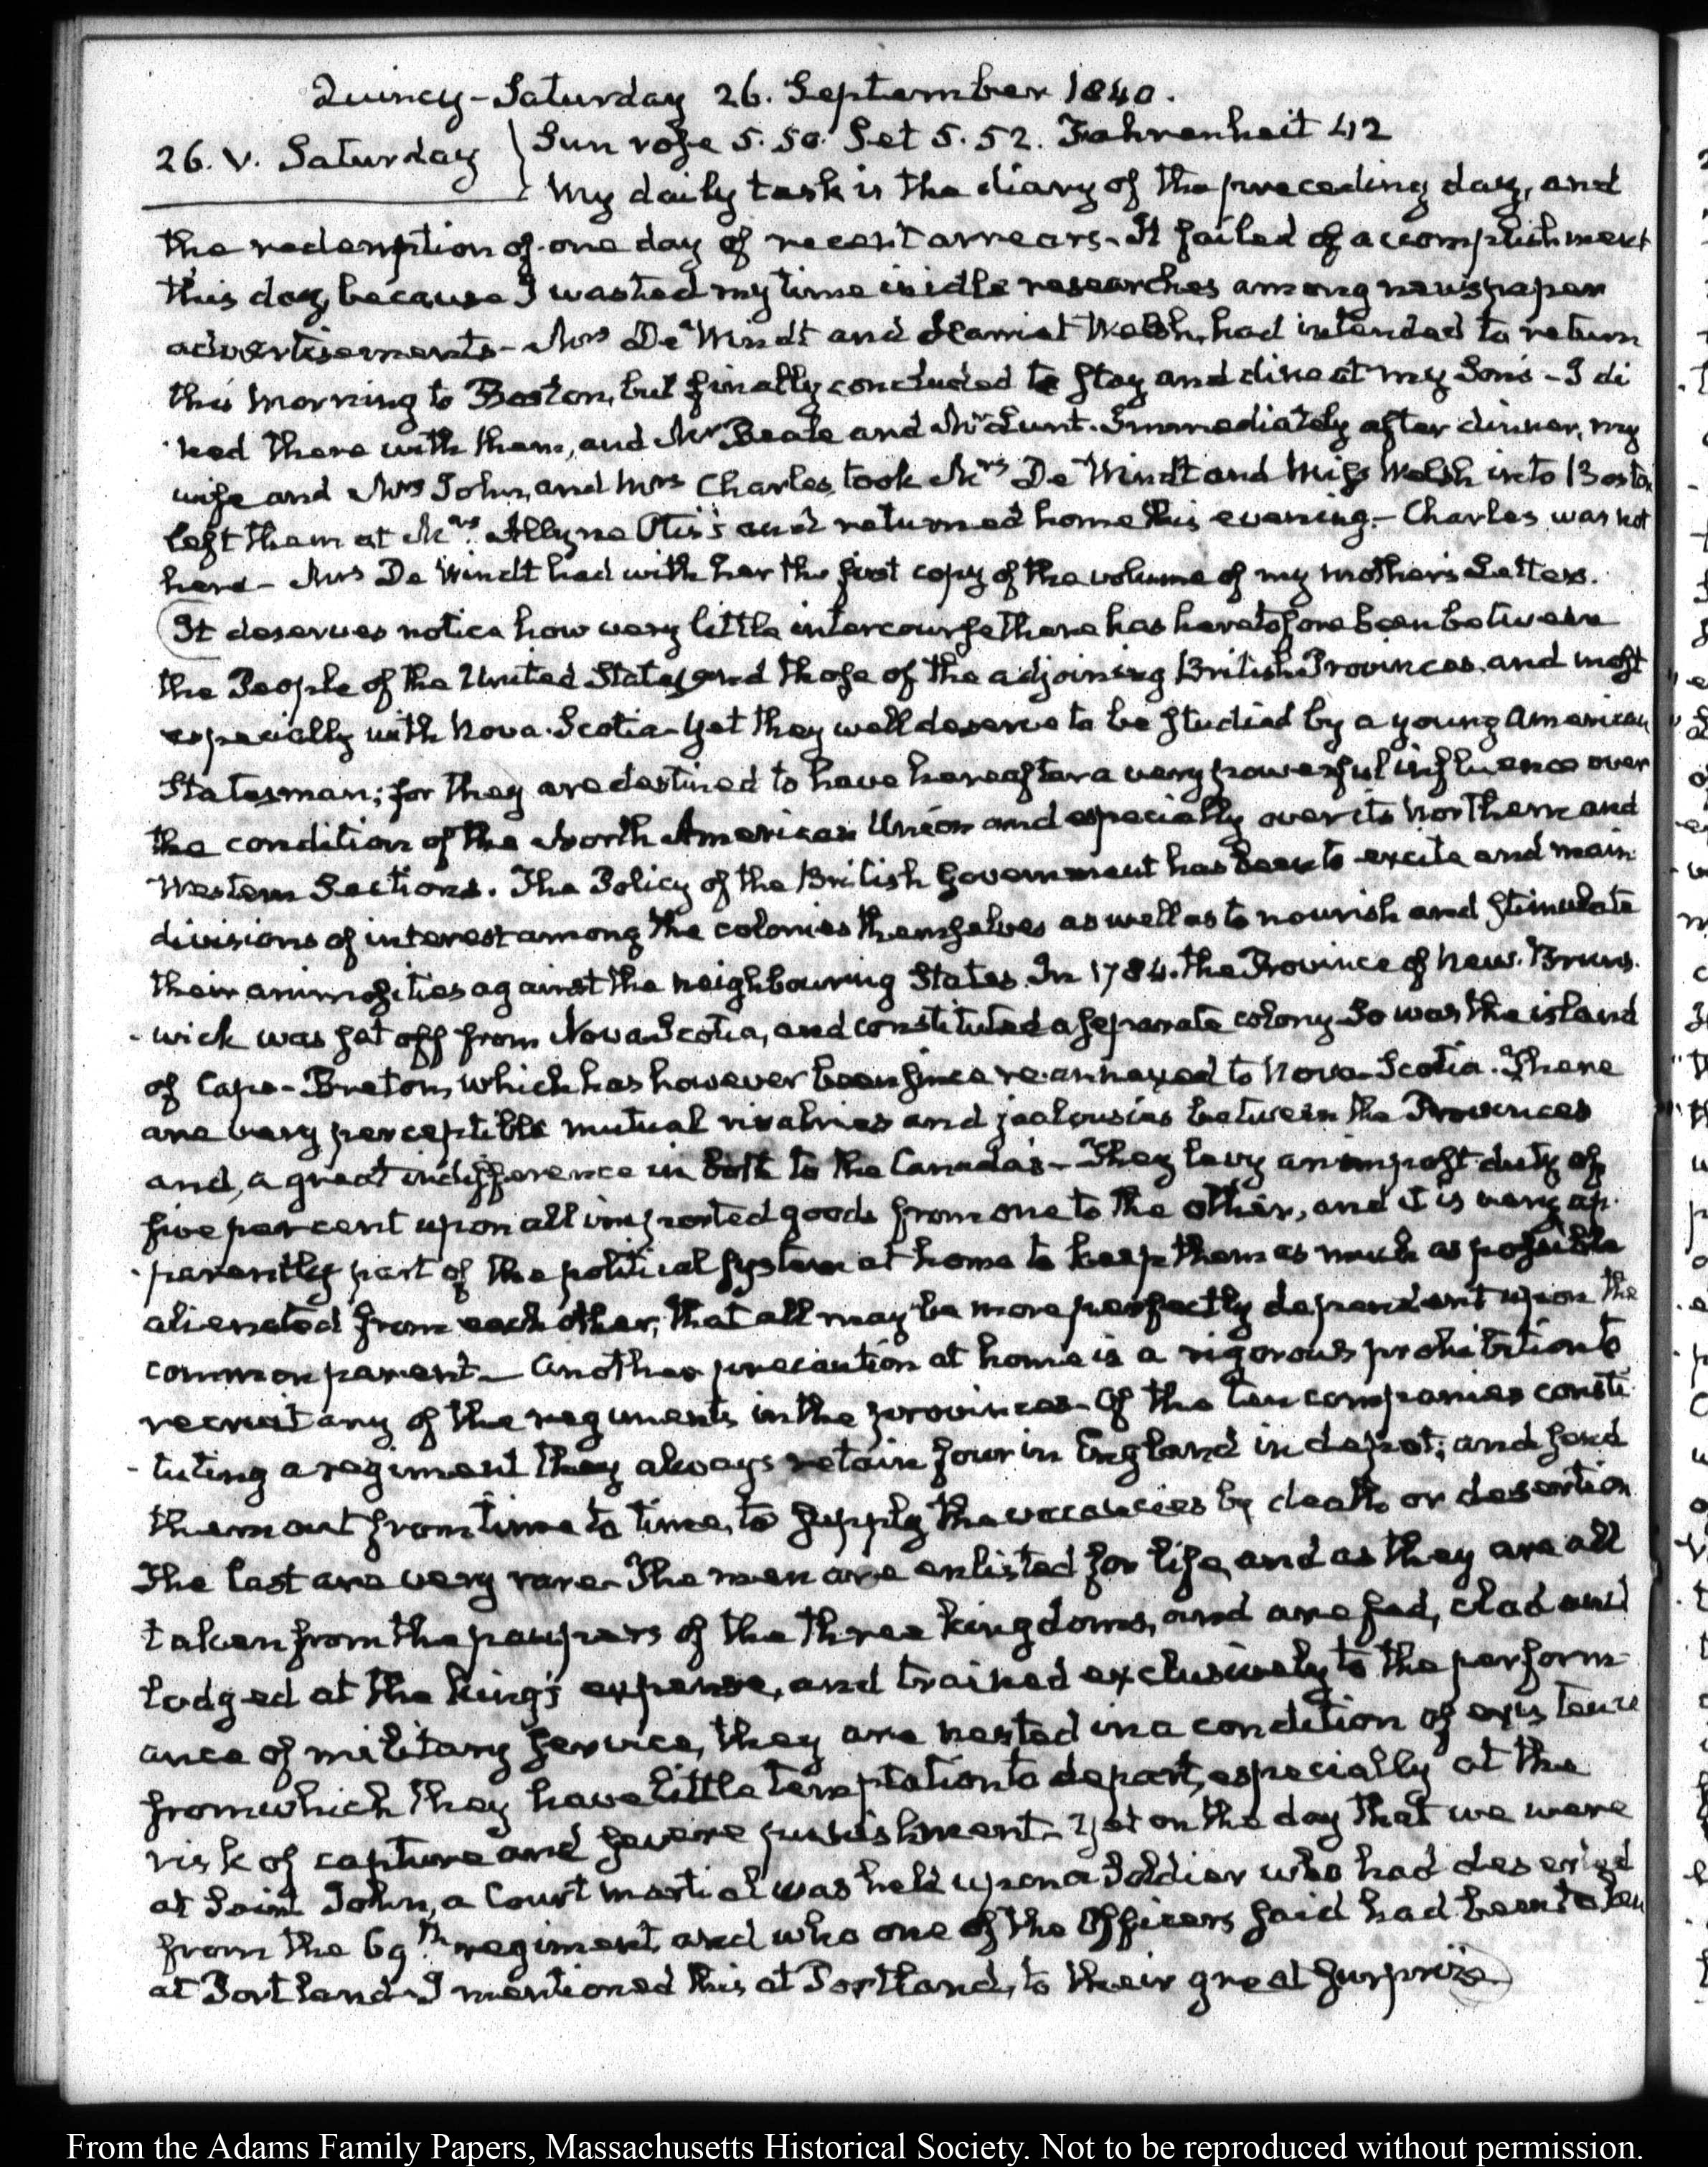 Quincy - Saturday 26. September 1840.
26. V. Saturday } Sun rose 5.50. Set 5.52. Fahrenheit 42
My daily task is the diary of the preceding day, and
the redemption of one day of recent arrears - It failed of accomplishment
this day, because I wasted my time in idle researches among newspaper
advertisements - Mrs De Windt and Harriet Welsh, had intended to return
this morning to Boston, but finally concluded to stay and dine at my Son's - I di
ned there with them, and Mr Beale and Mr Lunt. Immediately after dinner, my
wife and Mrs John, and Mrs Charles, took Mrs De Windt and Miss Welsh into Boston
left them at Mrs Allyne Otis's and returned home this evening. - Charles was not
here - Mrs De Windt had with her the first copy of the volume of my mother's Letters.
It deserves notice how very little intercourse there has heretofore been between
the People of the United States, and those of the adjoining British Provinces, and most
especially with Nova-Scotia - Yet they well deserve to be studied by a young American
Statesman; for they are destined to have hereafter a very powerful influence over
the condition of the North American Union and especially over its Northern and
Western Sections. The Policy of the British Government has been to excite and main
divisions of interest among the colonies themselves as well as to nourish and stimulate
their animosities against the neighbouring States. In 1784. the Province of New-Bruns-
-wick was set off from Nova Scotia, and constituted a separate colony So was the island
of Cape-Breton, which has however been since re-annexed to Nova-Scotia. There
are very perceptible mutual rivalries and jealousies between the Provinces
and, a great indifference in both to the Canada's - They levy an impost duty of
five per cent upon all imported goods from one to the other, and it is very ap-
-parently part of the political system at home to keep them as much as possible
alienated from each other, that all may be more perfectly dependent upon the
common parent - Another precaution at home is a rigorous prohibition to
recruit any of the regiments in the provinces - Of the ten companies consti-
-tuting a regiment they always retain four in England in depot; and send
them out from time to time, to supply the vacancies by death or desertion
The last are very rare - The men are enlisted for life, and as they are all
taken from the paupers of the three kingdoms, and are fed, clad and
lodged at the king's expense, and trained exclusively to the perform-
ance of military service, they are nested in a condition of existence
from which they have little temptation to depart, especially at the
risk of capture and severe punishment - Yet on the day that we were
at Saint John, a Court martial was held upon a Soldier who had deserted
from the 69th regiment and who one of the Officers said had been taken
at Portland - I mentioned this at Portland, to their great surprize
From the Adams Family Papers, Massachusetts Historical Society. Not to be reproduced without permission.